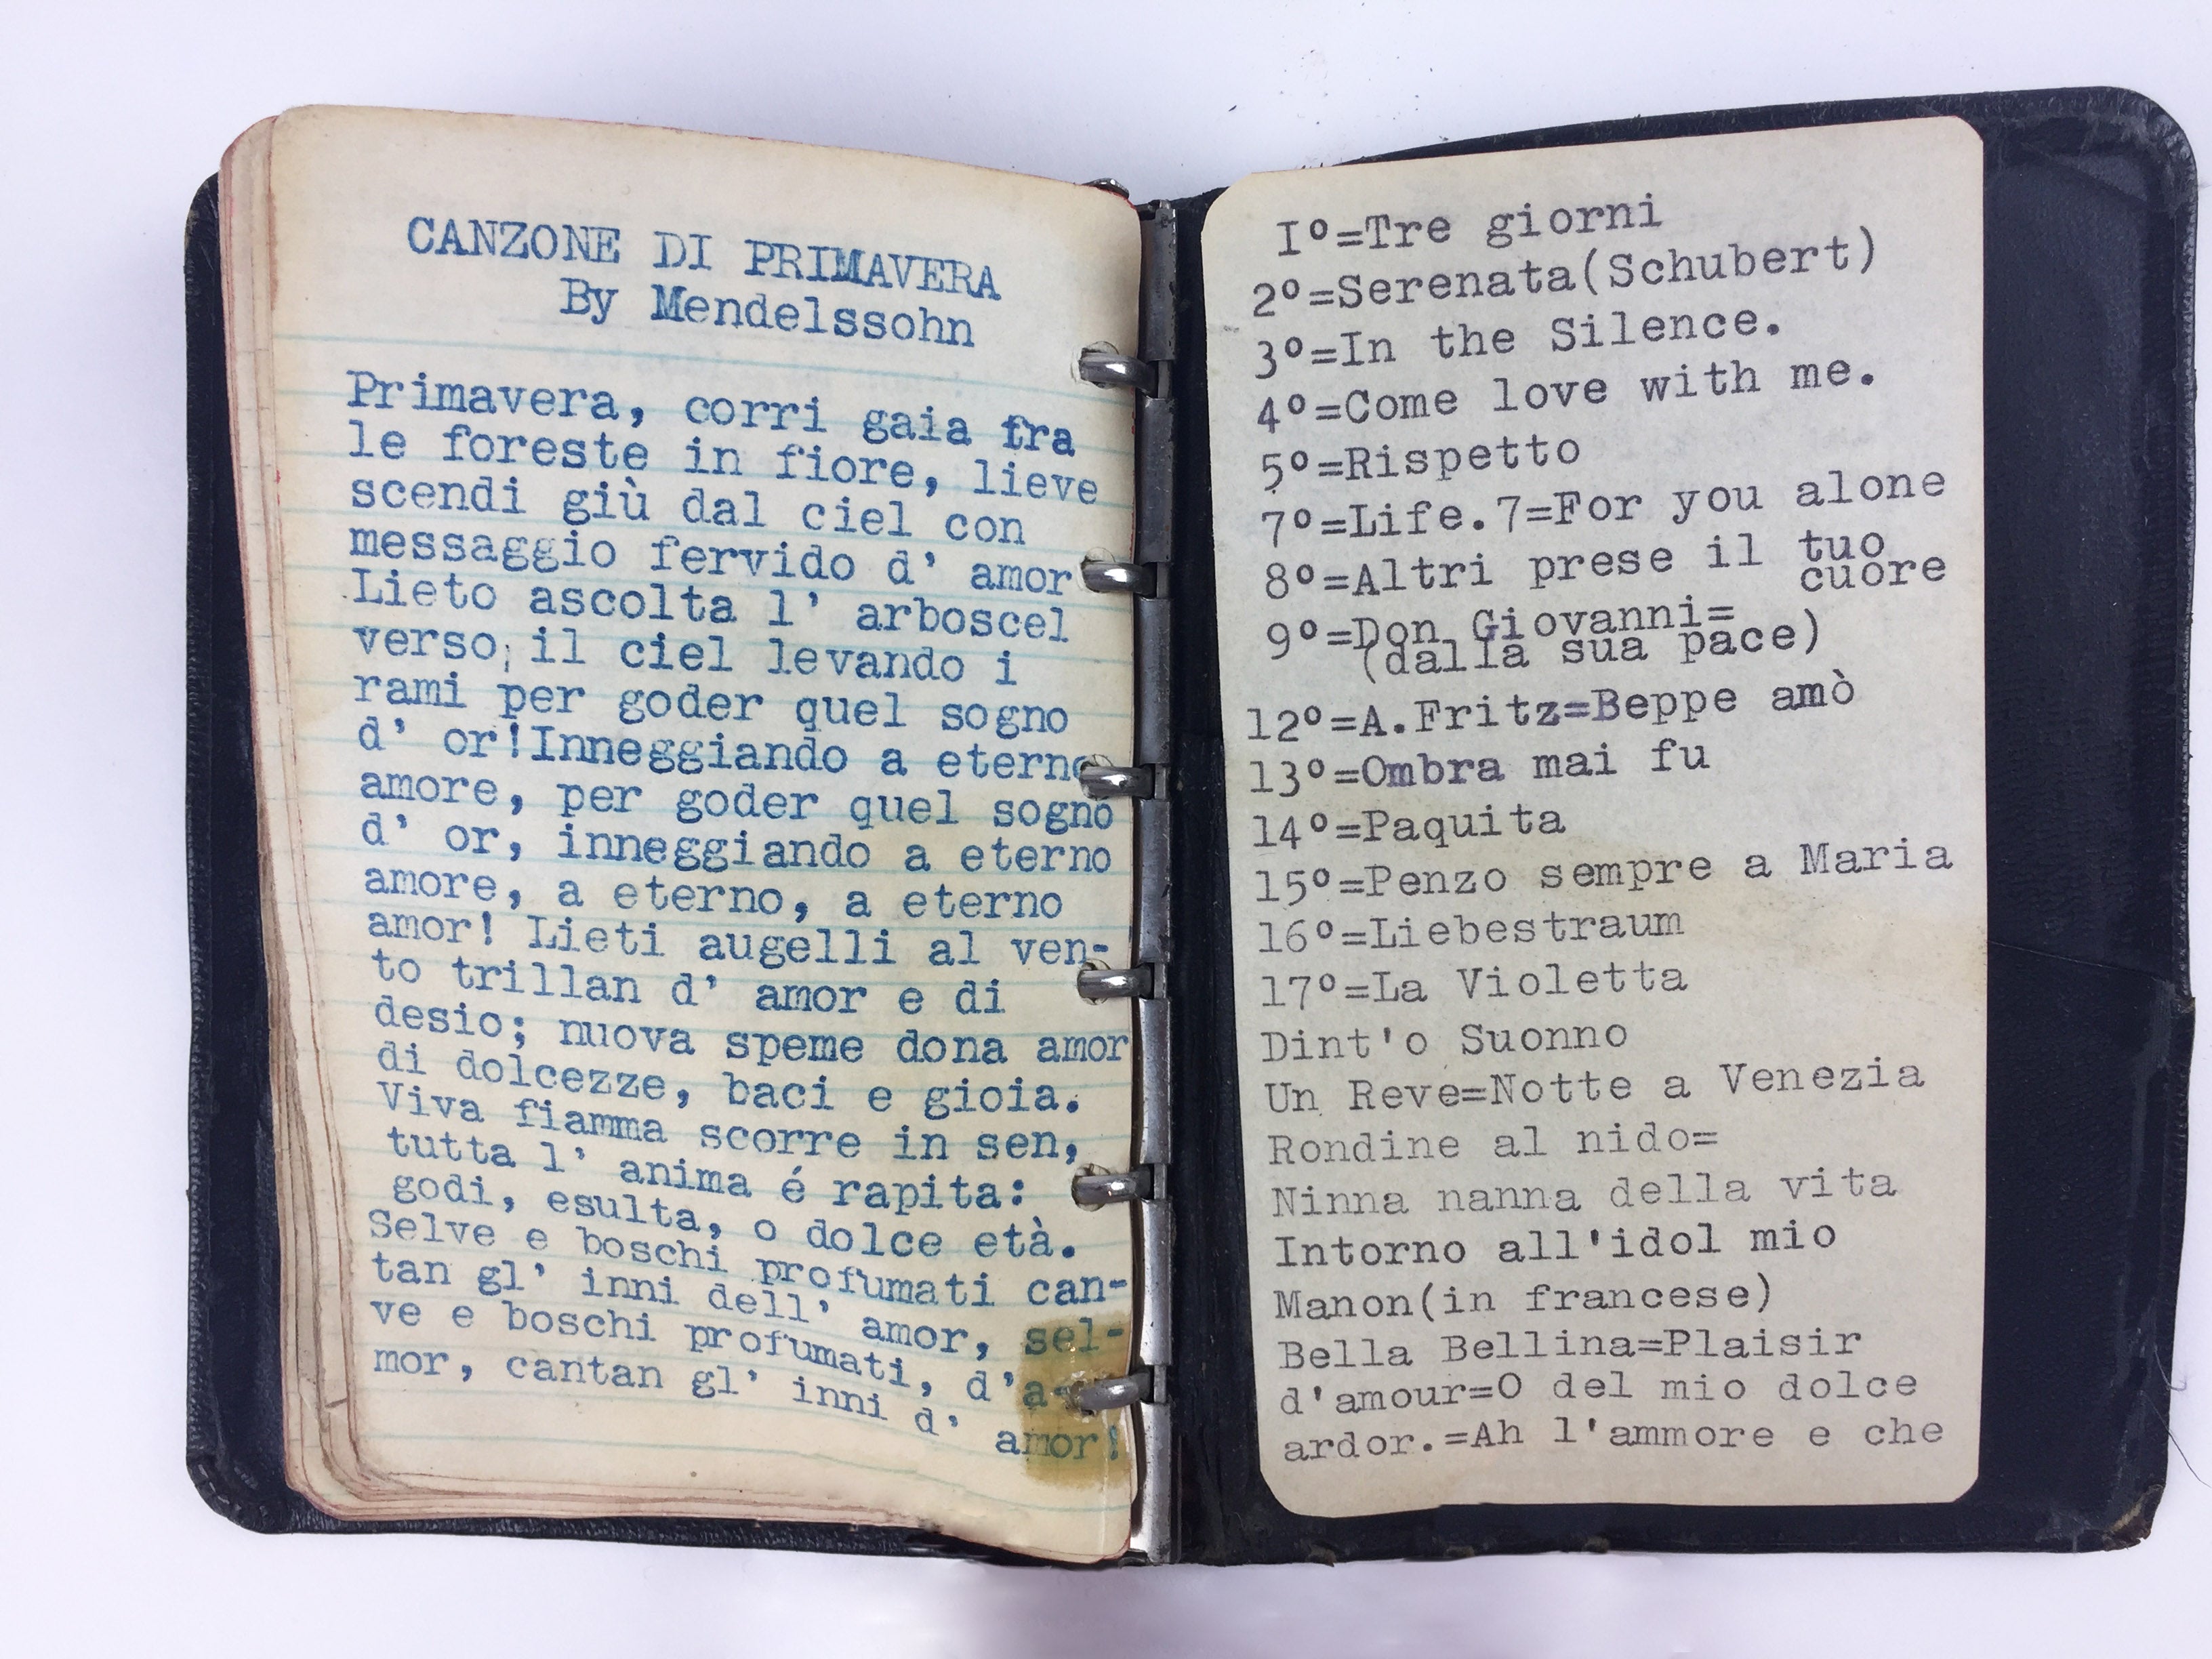 CANZONE DI PRIMAVERA
By Mendelssohn
Primavera, corri gaia fra
le foreste in fiore, lieve
scendi giù dal ciel con
messaggio fervido d' amor
Lieto ascolta l' arboscel
verso, il ciel levando i
rami per goder quel sogno
d' or!Inneggiando a eterno
amore, per goder quel sogno
d' or, inneggiando a eterno
amore, a eterno, a eterno
amor! Lieti augelli al ven-
to trillan d' amor e di
desio; nuova speme dona amor
di dolcezze, baci e gioia.
Viva fiamma scorre in sen,
tutta l' anima é rapita:
godi, esulta, o dolce età.
Selve e boschi profumati can-
tan gl' inni dell' amor, sel-
ve e boschi profumati, d'a-
mor, cantan gl' inni d' amor!
I°=Tre giorni
2°=Serenata(Schubert)
3°=In the Silence.
4°=Come love with me.
5°=Rispetto
7°=Life.7=For you alone
8°=Altri prese il tuo
cuore
9°=Don Giovanni=
(dalla sua pace)
12°=A.Fritz=Beppe amò
13°=Ombra mai fu
14°=Paquita
15°=Penzo sempre a Maria
16°=Liebestraum
17°=La Violetta
Dint'o Suonno
Un Reve=Notte a Venezia
Rondine al nido=
Ninna nanna della vita
Intorno all'idol mio
Manon(in francese)
Bella Bellina=Plaisir
d'amour=O del mio dolce
ardor.=Ah l'ammore e che